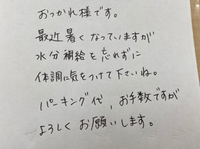 おつかれ様です。
最近暑くなっていますが
水分補給を忘れずに
体調に気をつけて下さいね。
パーキング代、お手数ですが
よろしくお願いします。